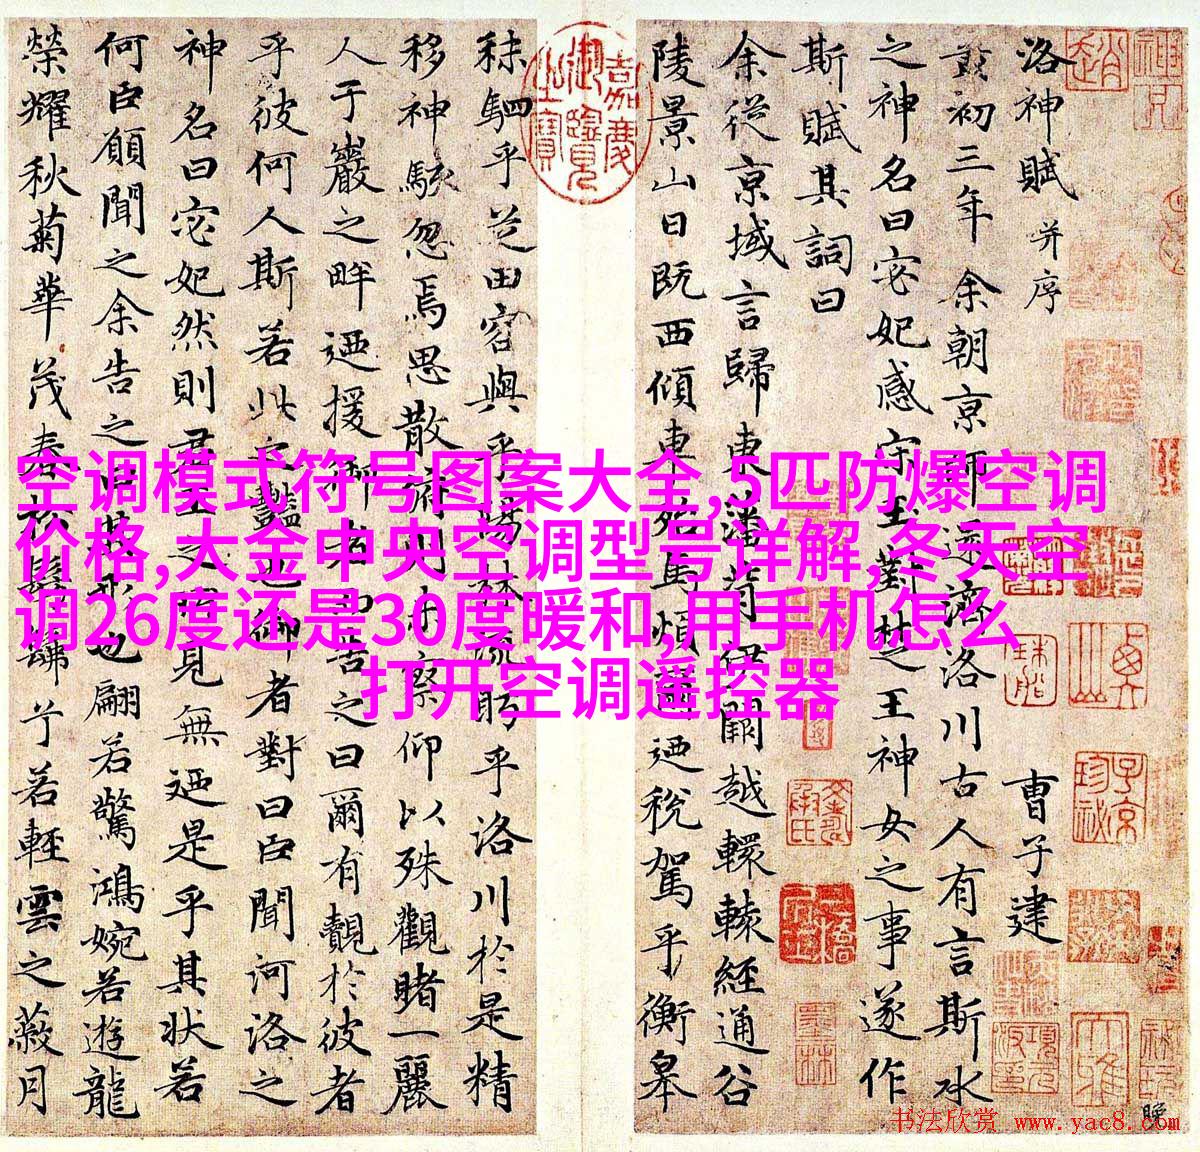 洛神賦 并序 曹子建
黃初三年余朝京師還濟洛川古人有言斯水
之神名曰宓妃感宋玉對楚王神女之事遂作
斯賦其詞曰
余從京域言歸東藩背伊闕越轘轅經通谷
陵景山日既西傾車殆馬煩爾迺稅駕乎衡皋
嘉慶御覽之寶
秣駟乎芝田容與乎楊林流眄乎洛川於是精
移神駭忽焉思散俯則未察仰以殊觀睹一麗
人于巖之畔迺援御者而告之曰爾有覿於彼者
乎彼何人斯若此之豔也御者對曰臣聞河洛之
神名曰宓妃然則君王之所見無迺是乎其狀若
何臣願聞之余告之曰其形也翩若驚鴻婉若遊龍
榮耀秋菊華茂春松髣髴兮若輕雲之蔽月
空调模式符号图案大全,5匹防爆空调
价格,大金中央空调型号详解,冬天空
调26度还是30度暖和,用手机怎么
打开空调遥控器
书法欣赏 www.yac8.com